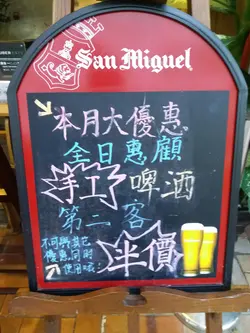 San Miguel
本月大優惠
全日惠顧
手工啤酒
第二客
半價
不可與其它
優惠同時
使用